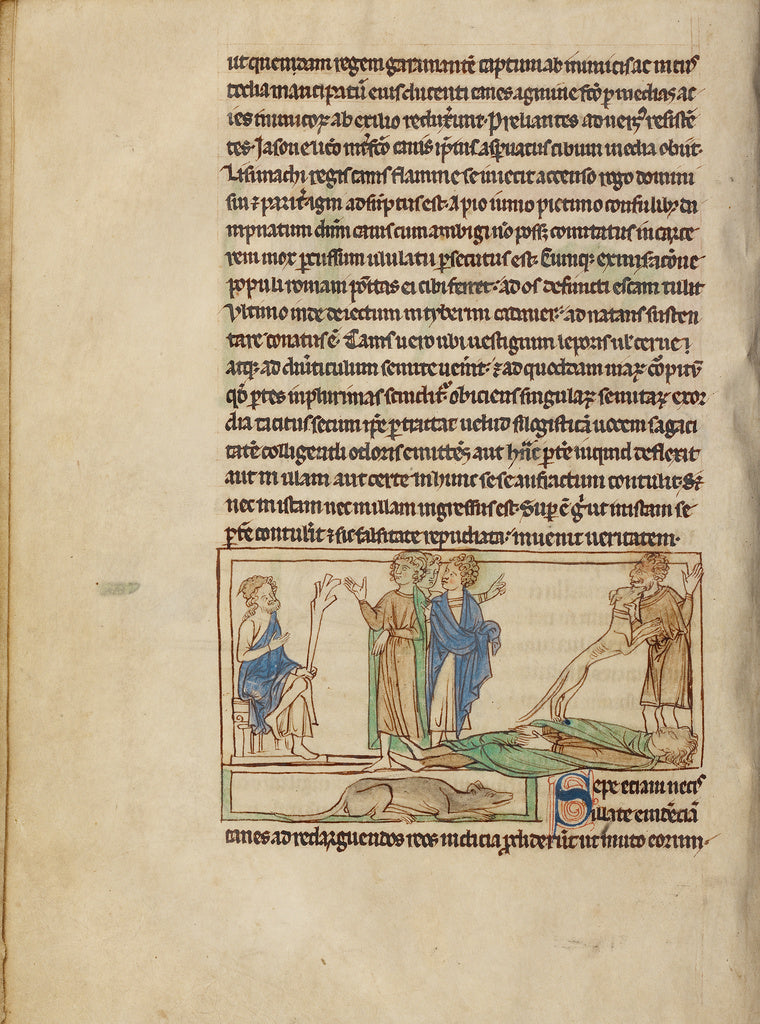 ut quemdam regem garamantē captum ab inimicis ac in cus
todia mancipatū eius ducenti canes agmine fc̄o p medias ac
ies inimicoꝝ ab exilio reduxerunt. Preliantes aduers' resistē
tes. Jasone uͦo int̄fco canis ip̄ius aspnatus cibum inedia obiit.
Lisimachi regis canis flamme se iniecit accenso rogo domini
sui ⁊ parit' igni adsūptus est. Apio iunio pictinio consulibꝫ da
mpnatum dn̄m canis cum ambigi nō poss; comitatus in carce
rem mox p̄cussum ululatu psecutus est. Cumq; ex miseracōne
populi romani po̅tas ei cibi ferret. ad os defuncti escam tulit
Vltimo inde deiectum in tyberim cadauer. adnatans susten
tare conatus ē. Canis uero ubi uestigium leporis ul' cerui
atq; ad diuticulum semite uenit. ⁊ ad quoddam uiaꝝ cōpitū
qd̄ ptes in plurimas scindit' obiciens singulaꝝ semitaꝝ exor
dia tacitus secum ip̄e ptractat uelud sillogisticā uocem sagaci
tatē colligendi odoris emittēs aut hāc ptē inquid deflexit
aut in illam aut certe in hunc sese anfractum contulit. S;
nec in istam nec in illam ingressus est. Sup ē g̊ ut in istam se
ptē contulit ⁊ sic falsitate repudiata. inuenit ueritatem.
Sepe etiam necis
illate euidēciā
canes ad redarguendos reos indicia pdiderūt ut muto eorum